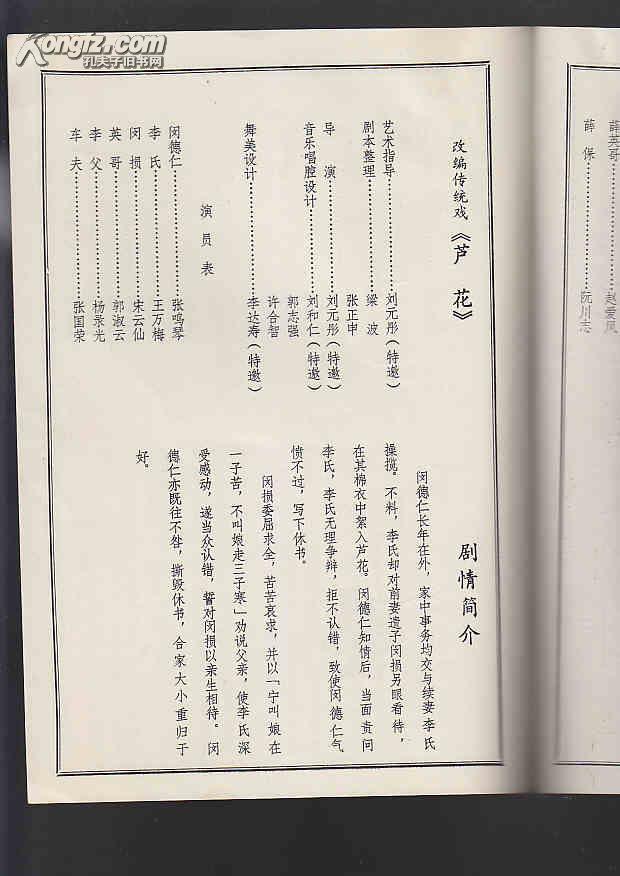 Kongfz.com
孔夫子旧书网
薛英哥……赵爱凤
薛保……阮川志
改编传统戏《芦花》
艺术指导……刘元彤(特邀)
剧本整理……梁波
张正申
导演……刘元彤(特邀)
音乐唱腔设计……刘和仁(特邀)
郭志强
许合智
舞美设计……李达寿(特邀)
演员表
闵德仁……张鸣琴
李氏……王万梅
闵损……宋云仙
英哥……郭淑云
李父……杨录光
车夫……张国荣
剧情简介
闵德仁长年在外,家中事务均交与续妻李氏
操揽。不料,李氏却对前妻遗子闵损另眼看待,
在其棉衣中絮入芦花。闵德仁知情后,当面责问
李氏,李氏无理争辩,拒不认错,致使闵德仁气
愤不过,写下休书。
闵损委屈求全,苦苦哀求,并以「宁叫娘在
一子苦,不叫娘走三子寒」劝说父亲,使李氏深
受感动,遂当众认错,誓对闵损以亲生相待。闵
德仁亦既往不咎,撕毁休书,合家大小重归于
好。